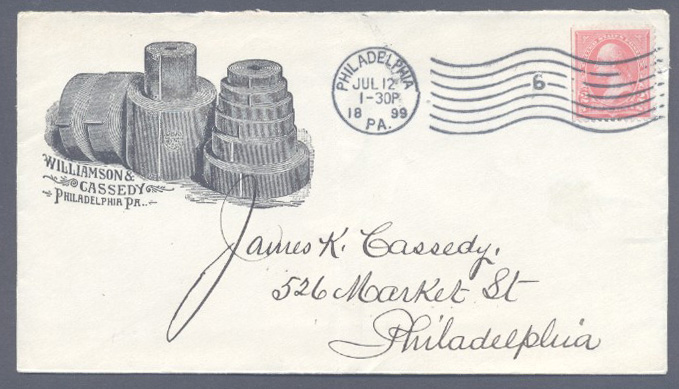 WILLIAMSON &
CASSEDY
PHILADELPHIA PA..
PHILADELPHIA
JUL 12
1-30P
18 99
PA.
6
James K. Cassedy,
526 Market St
Philadelphia